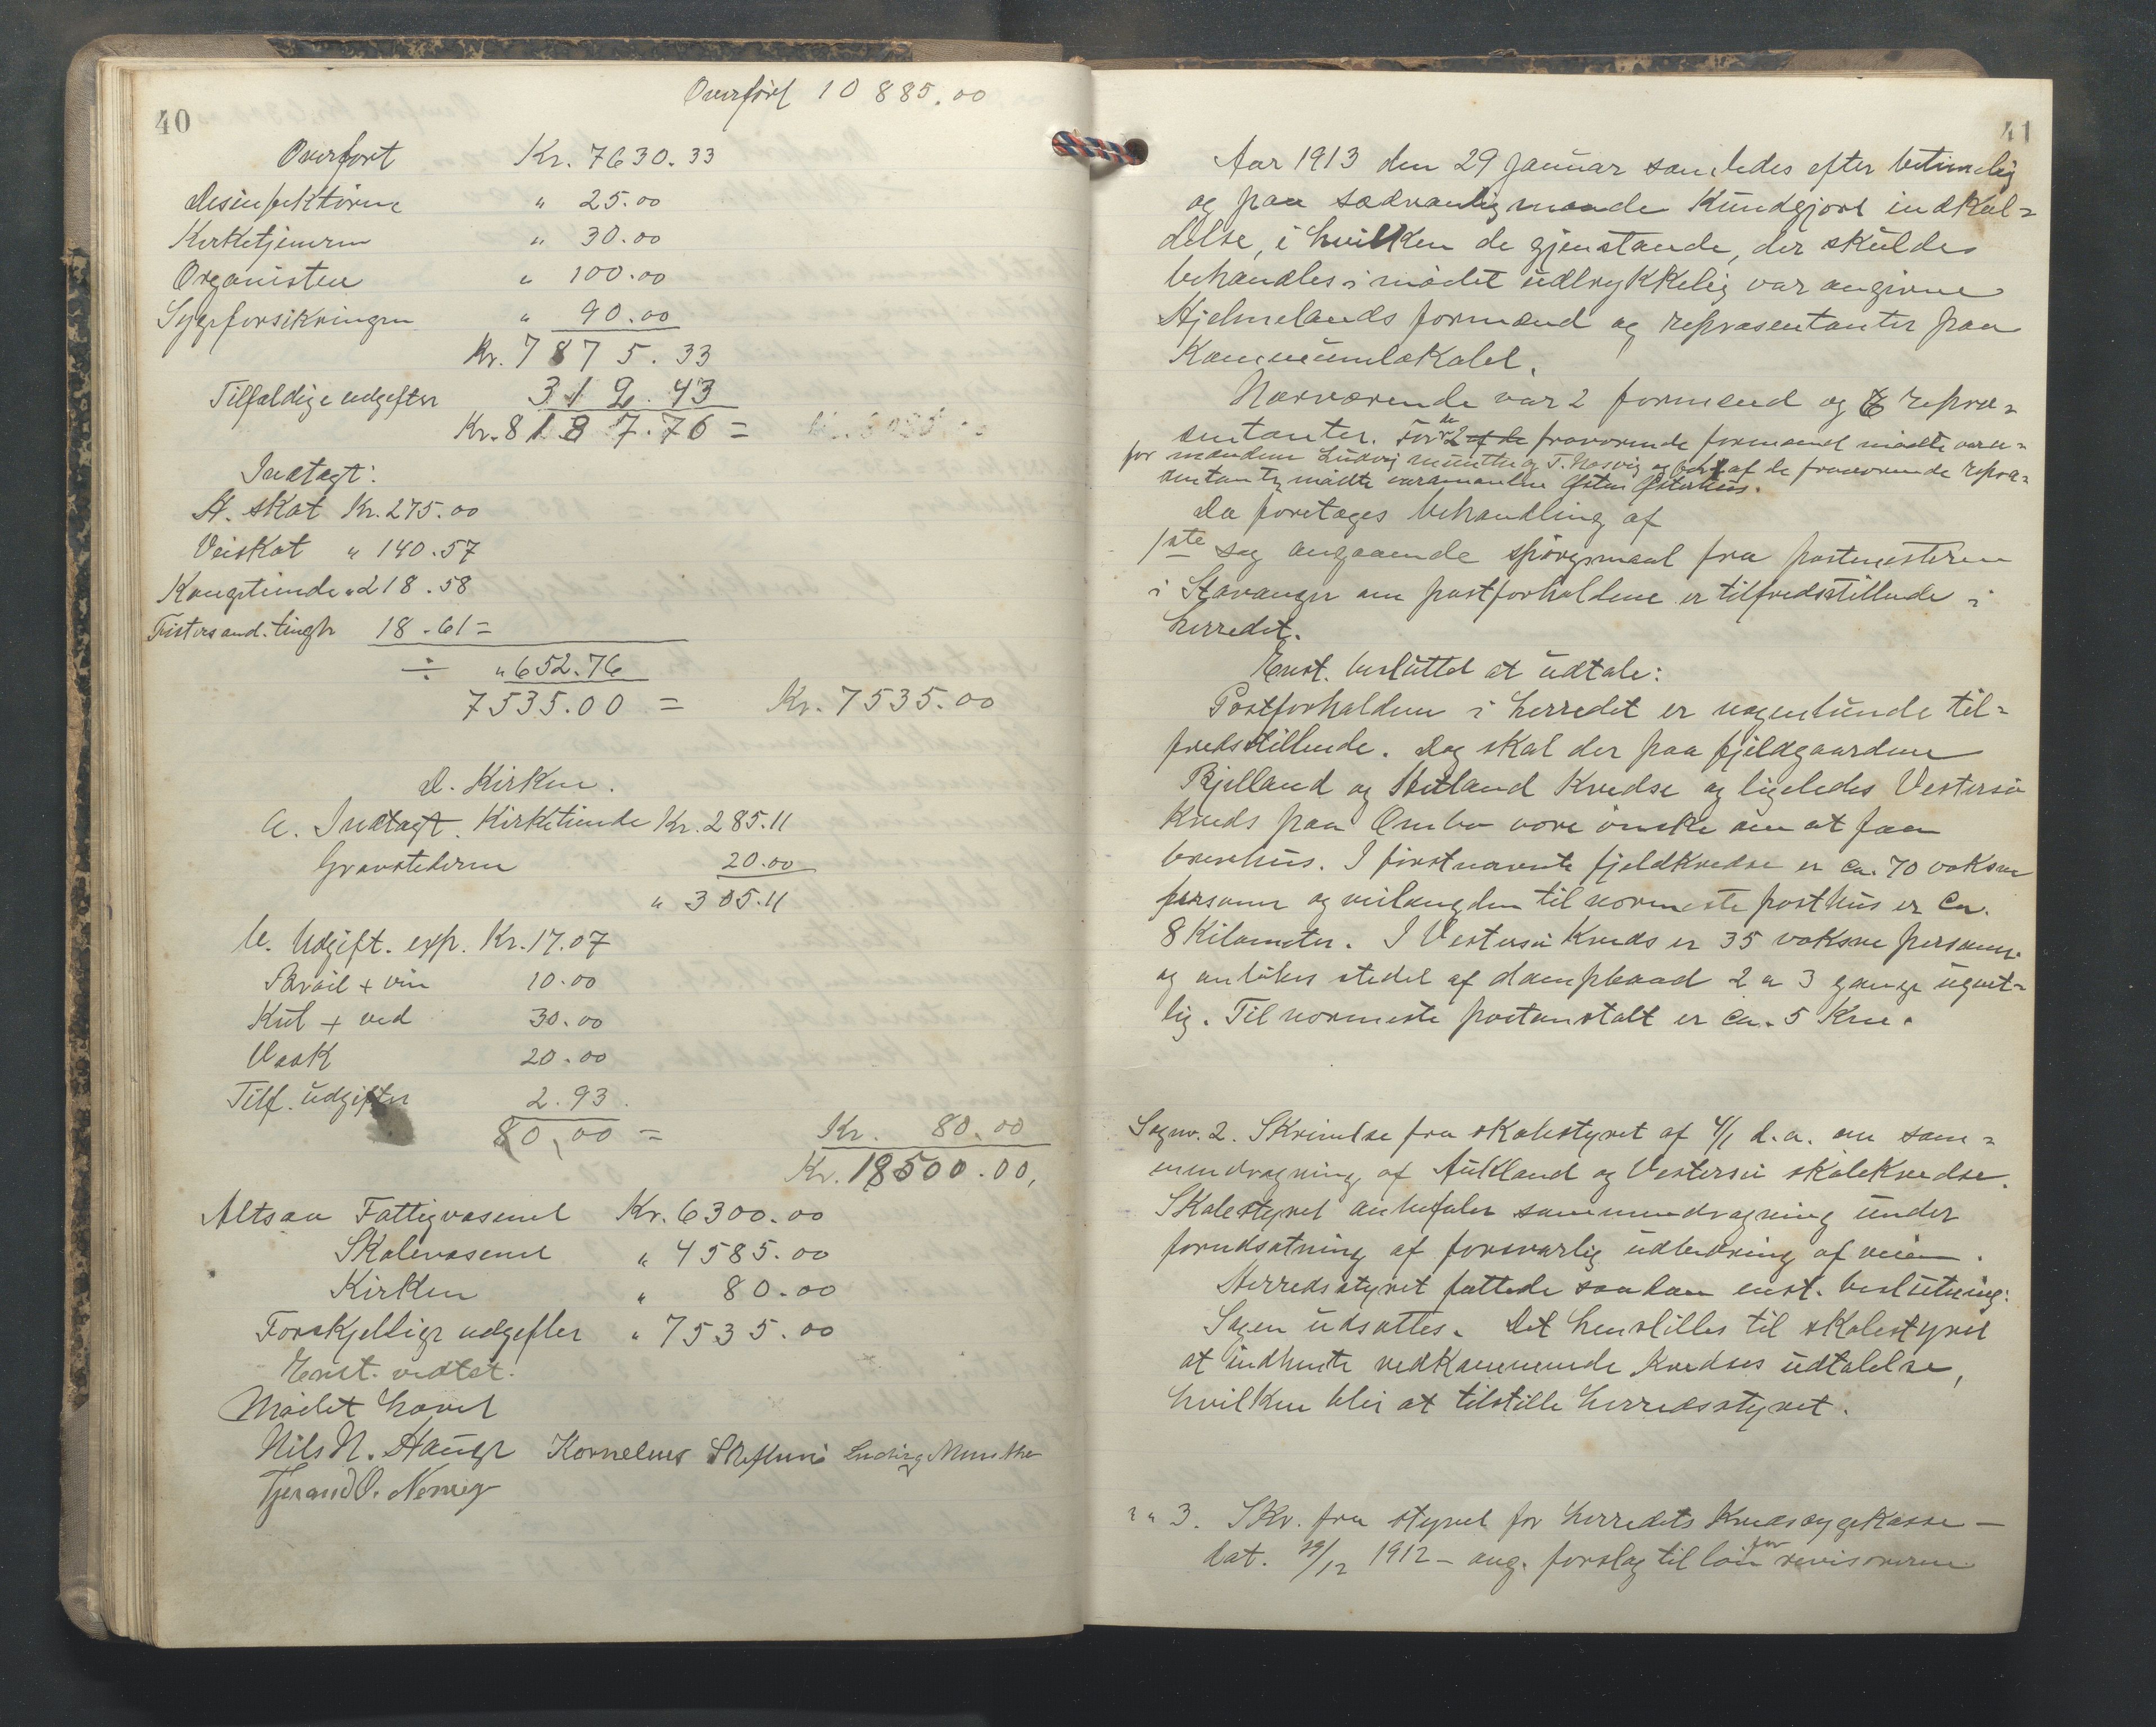 40
Overført 10 885.00
Overført Kr. 7630.33
Desinfektørene " 25.00
Kirketjeneren " 30.00
Organisten " 100.00
Sygeforsikringen " 90.00
Kr. 7875.33
Tilfældige udgifter 312.43
Kr. 8187.76 =
Indtægt:
H. skat Kr. 275.00
Veiskat " 140.57
Kongetiende " 218.58
Fisters and. tingh 18.61 =
÷ " 652.76
7535.00 = Kr. 7535.00
D. Kirken.
a. Indtægt. Kirketiende Kr. 285.11
Gravstederne 20.00
" 305.11
b. Udgift. exp. Kr. 17.07
Brød + vin 10.00
Kul + ved 30.00
Vask 20.00
Tilf. udgifter 2.93
80.00 = Kr. 80.00
Kr. 18500.00,
Altsaa Fattigvæsenet Kr. 6300.00
Skolevæsenet " 4585.00
Kirken " 80.00
Forskjellige udgifter " 7535.00
Enst. vedtat.
Mødet hævet
Nils N. Hauge Kornelius Ludvig Munthe
Tjerand O.
41
Aar 1913 den 29 Januar samledes efter betimelig
og paa sædvanlig maade kundgjort indkal=
delse, i hvilken de gjenstande, der skulde
behandles i mødet udtrykkelig var angivne
Hjelmelands formænd og repræsentanter paa
Kommunelokalet.
Nærværende var 2 formænd og repræ=
sentanter. For de 2 af de fraværende formænd mødte vara=
for mændene Ludvig Munthe og T. Næsvig og for 1 af de fraværende repræ=
sentanter mødte varamanden Østen Østerhus.
Da foretages behandling af
1ste sag angaaende spørgsmaal fra postmesteren
i Stavanger om postforholdene er tilfredsstillende i
herredet.
Enst. besluttet at udtale:
Postforholdene i herredet er nogenlunde til=
fredsstillende. Dog skal der paa fjeldgaardene
Bjelland og Hetland kredse og ligeledes Vestersø
kreds paa Ombo være ønske om at faa
brevhus. I førstnævnte fjeldkredse er ca. 70 voksne
personer og veilængden til nærmeste posthus er ca.
8 Kilometer. I Vestersø kreds er 35 voksne personer
og anløbes stedet af dampbaad 2 a 3 gange ugent=
lig. Til nærmeste postanstalt er ca. 5 Km.
Sag nr. 2. Skrivelse fra skolestyret af 4/1 d.a. om sam=
mendragning af Aukland og Vestersø skolekredse.
Skolestyret anbefaler sammendragning under
forudsætning af forsvarlig udbedring af veien.
Herredsstyret fattede saadan enst. beslutning:
Sagen udsættes. Det henstilles til skolestyret
at indhente vedkommende kredses udtalelse,
hvilken blir at tilstille herredsstyret.
" " 3. Skr. fra styret for herredets kredssygekasse —
dat. 29/12 1912 — ang. forslag til løn for revisorerne